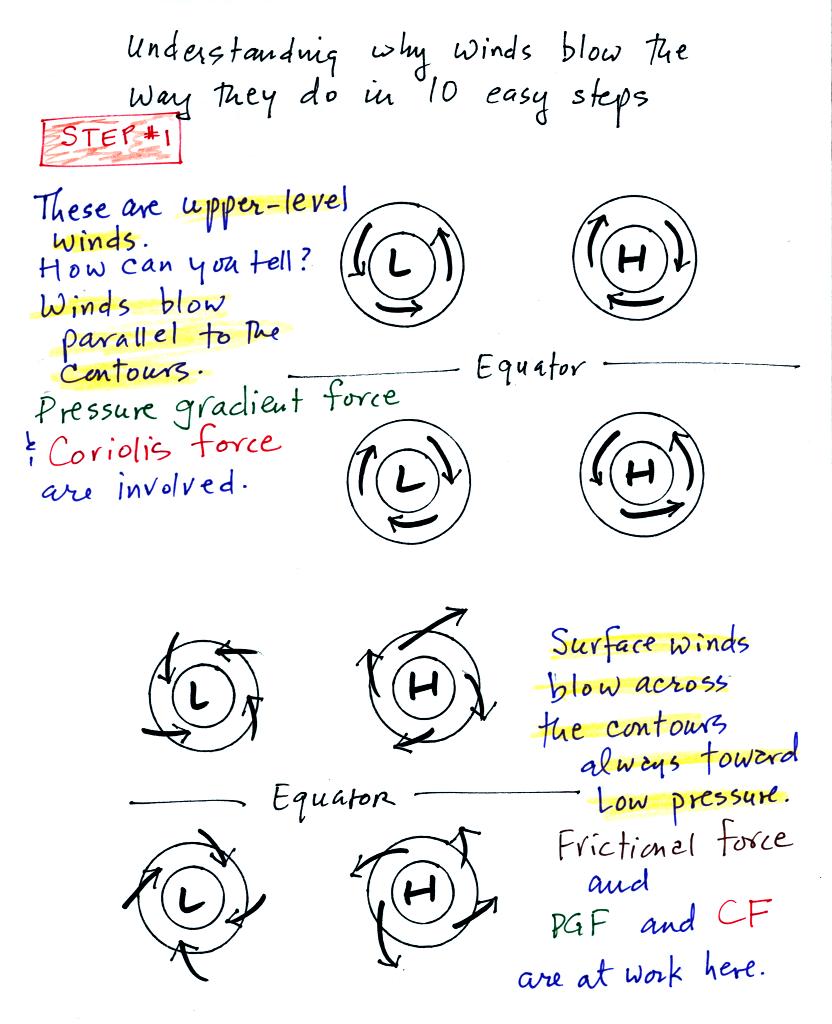 Understanding why winds blow the
way they do in 10 easy steps
STEP #1
These are upper-level
winds.
How can you tell?
Winds blow
parallel to the
contours.
Pressure gradient force
& Coriolis force
are involved.
L
H
Equator
L
H
L
H
Surface winds
blow across
the contours
always toward
Low pressure.
Equator
Frictional force
and
PGF and CF
are at work here.
L
H